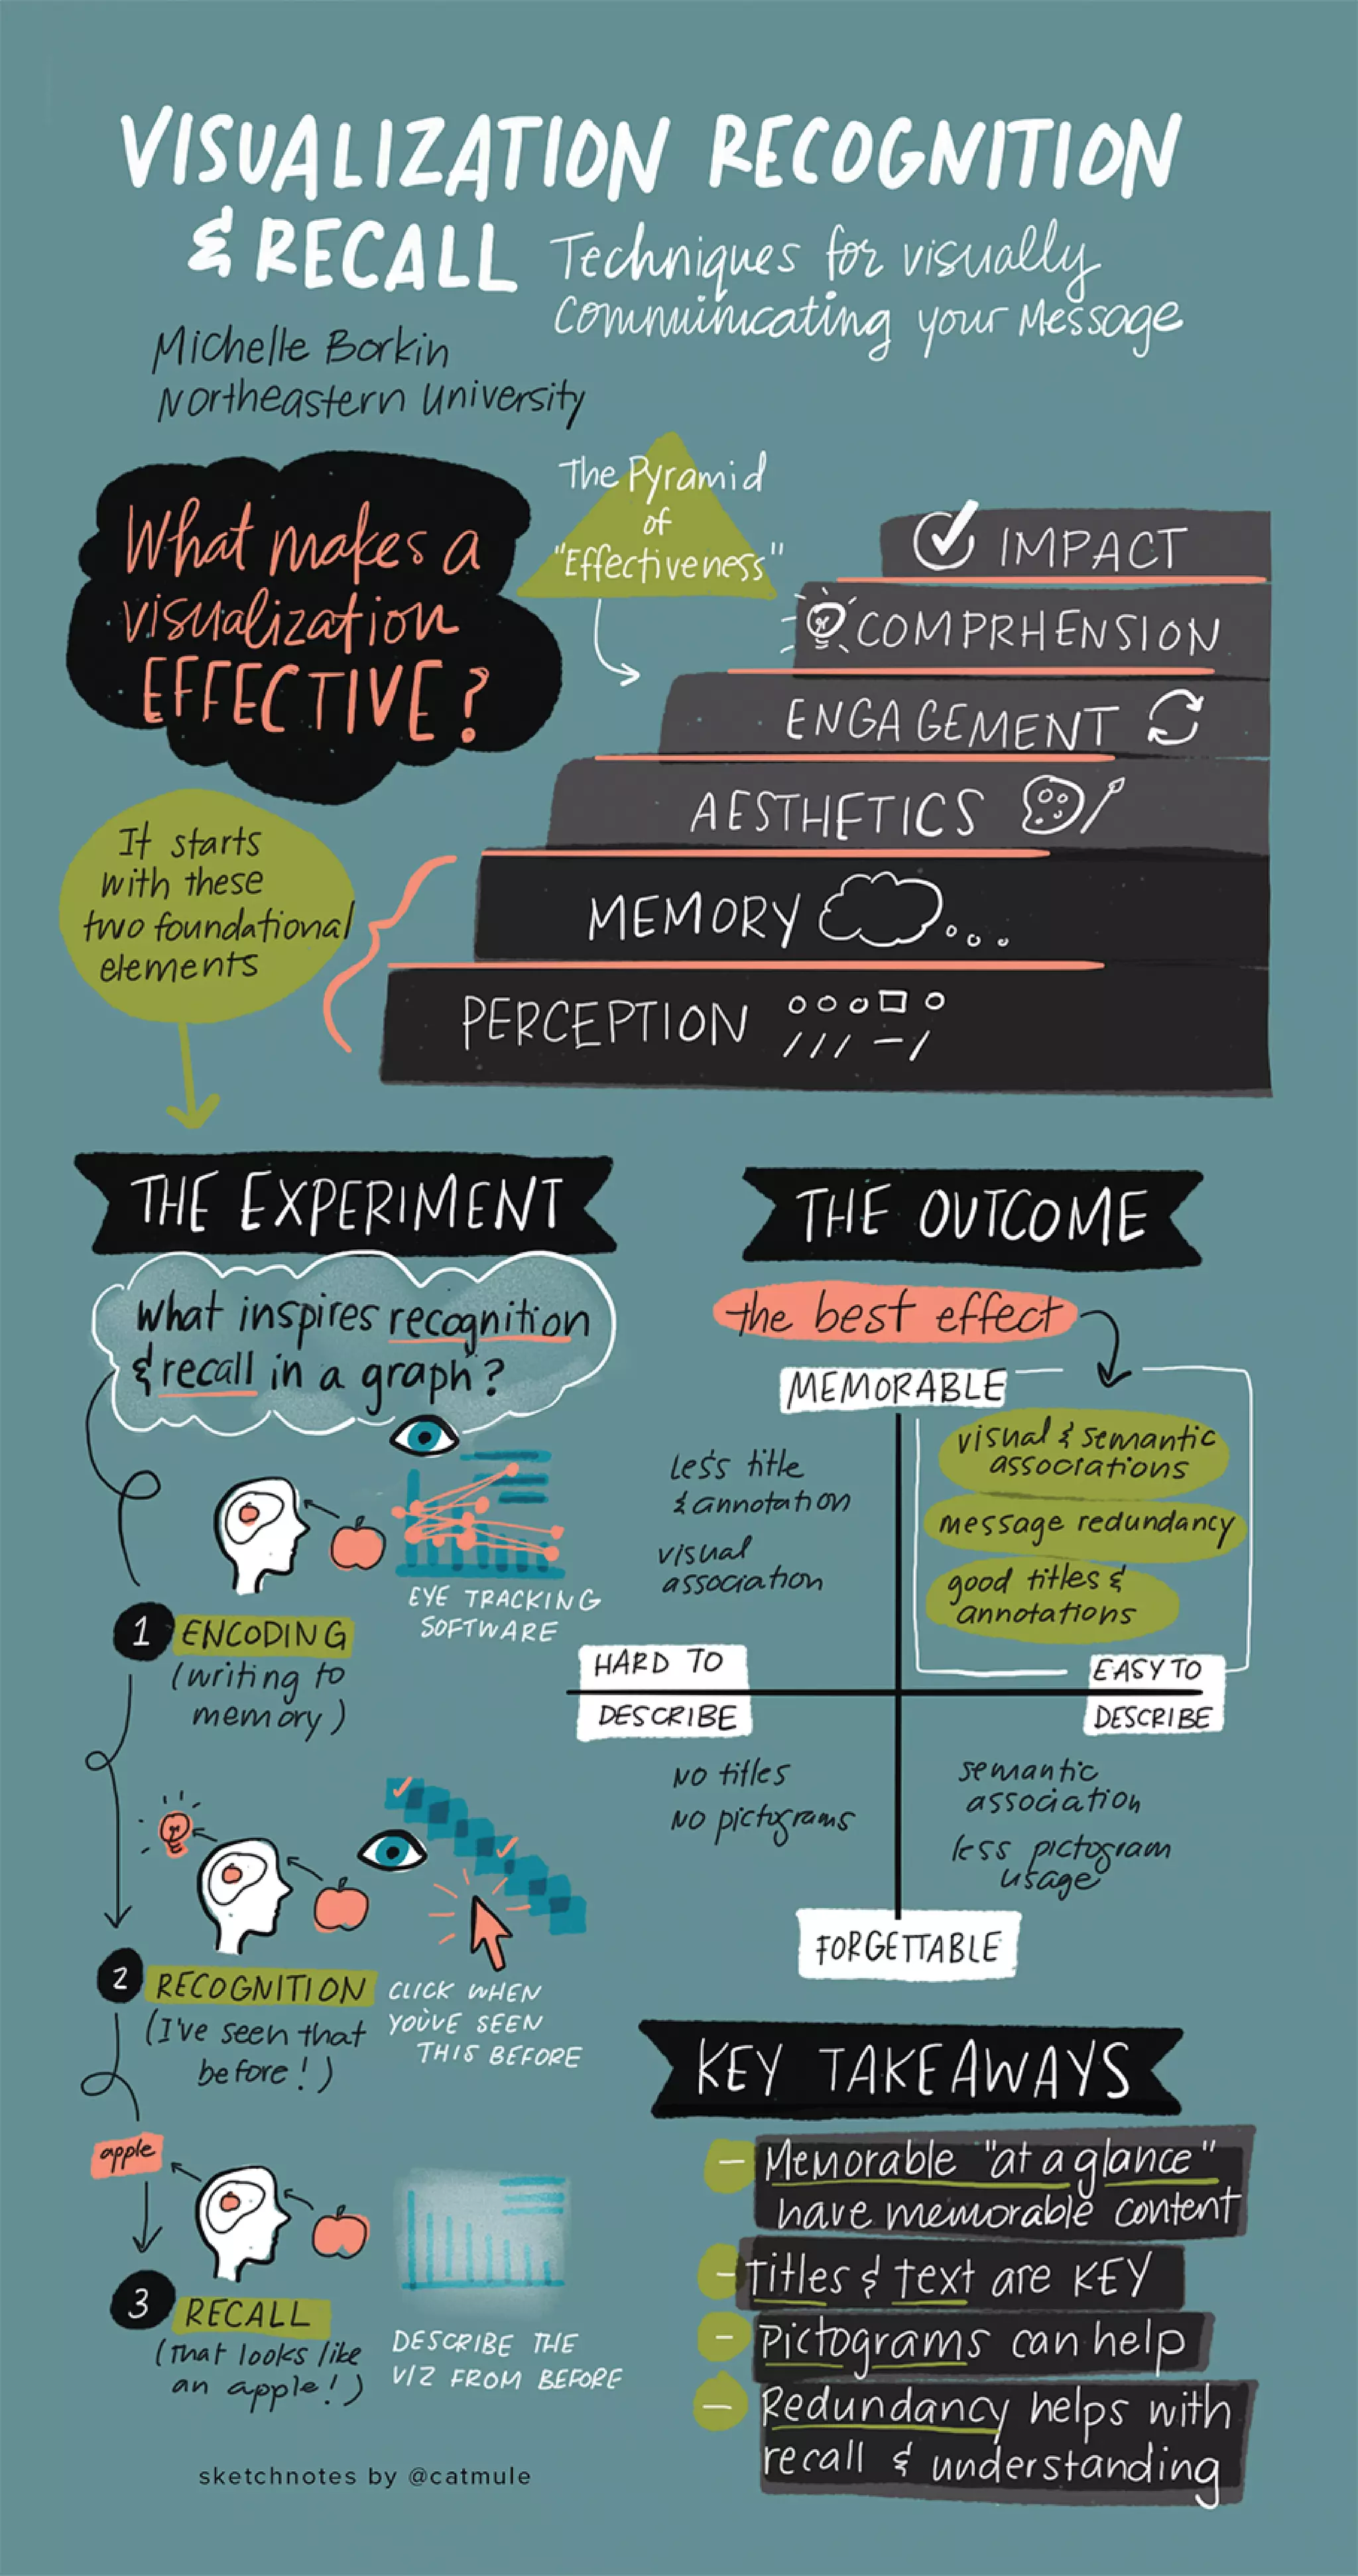 VISUALIZATION RECOGNITION
& RECALL
Techniques for visually
communicating your Message
Michelle Borkin
Northeastern University
What makes a
visualization
EFFECTIVE?
The Pyramid
of
"Effectiveness"
IMPACT
COMPRHENSION
ENGAGEMENT
AESTHETICS
MEMORY
PERCEPTION
It starts
with these
two foundational
elements
THE EXPERIMENT
What inspires recognition
& recall in a graph?
EYE TRACKING
SOFTWARE
1 ENCODING
(writing to
memory)
2 RECOGNITION
(I've seen that
before!)
CLICK WHEN
YOU'VE SEEN
THIS BEFORE
apple
3 RECALL
(That looks like
an apple!)
DESCRIBE THE
VIZ FROM BEFORE
sketchnotes by @catmule
THE OUTCOME
the best effect
MEMORABLE
less title
& annotation
visual
association
visual & semantic
associations
message redundancy
good titles &
annotations
HARD TO
DESCRIBE
EASY TO
DESCRIBE
NO titles
NO pictograms
semantic
association
less pictogram
usage
FORGETTABLE
KEY TAKEAWAYS
- Memorable "at a glance"
have memorable content
- Titles & text are KEY
- Pictograms can help
- Redundancy helps with
recall & understanding